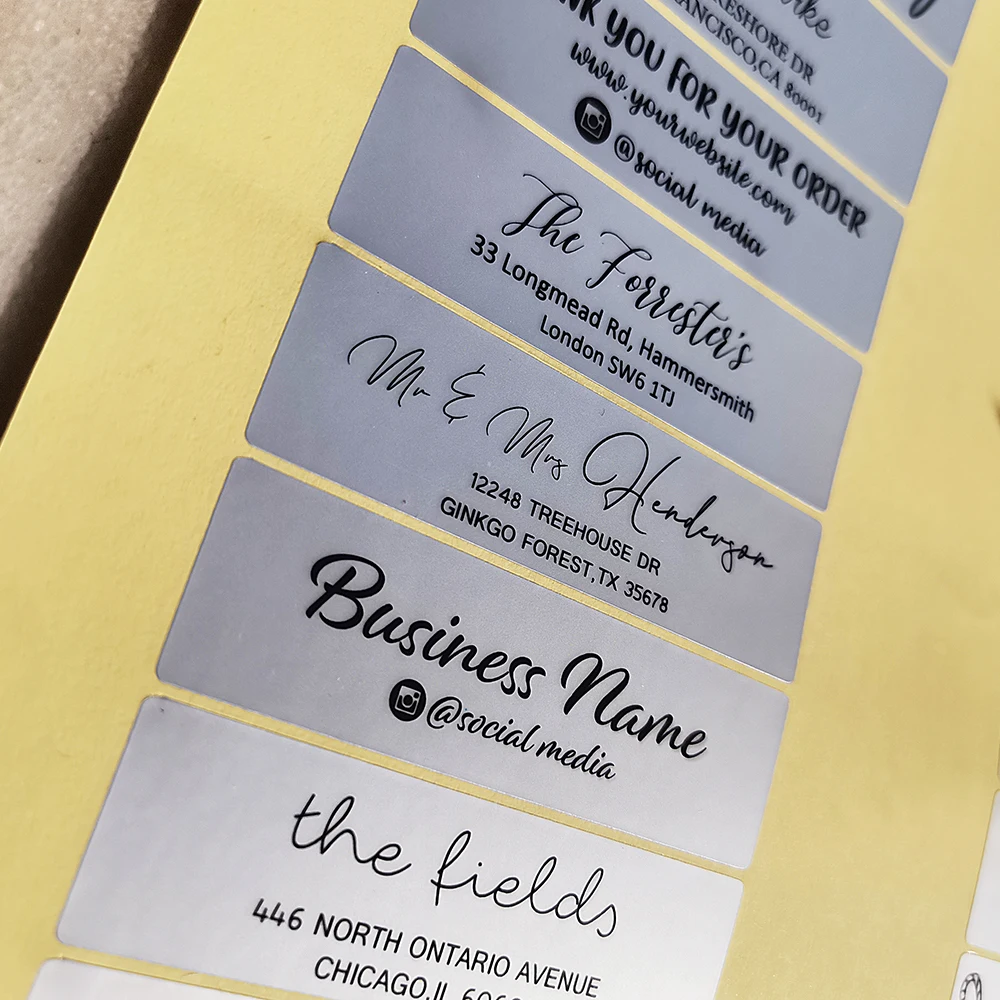 SHORE DR
FRANCISCO,CA 80001
YOU FOR YOUR ORDER
www.yourwebsite.com
@social media
The Forrester's
33 Longmead Rd, Hammersmith
London SW6 1TJ
Mr & Mrs Henderson
12248 TREEHOUSE DR
GINKGO FOREST,TX 35678
Business Name
@social media
the fields
446 NORTH ONTARIO AVENUE
CHICAGO,IL